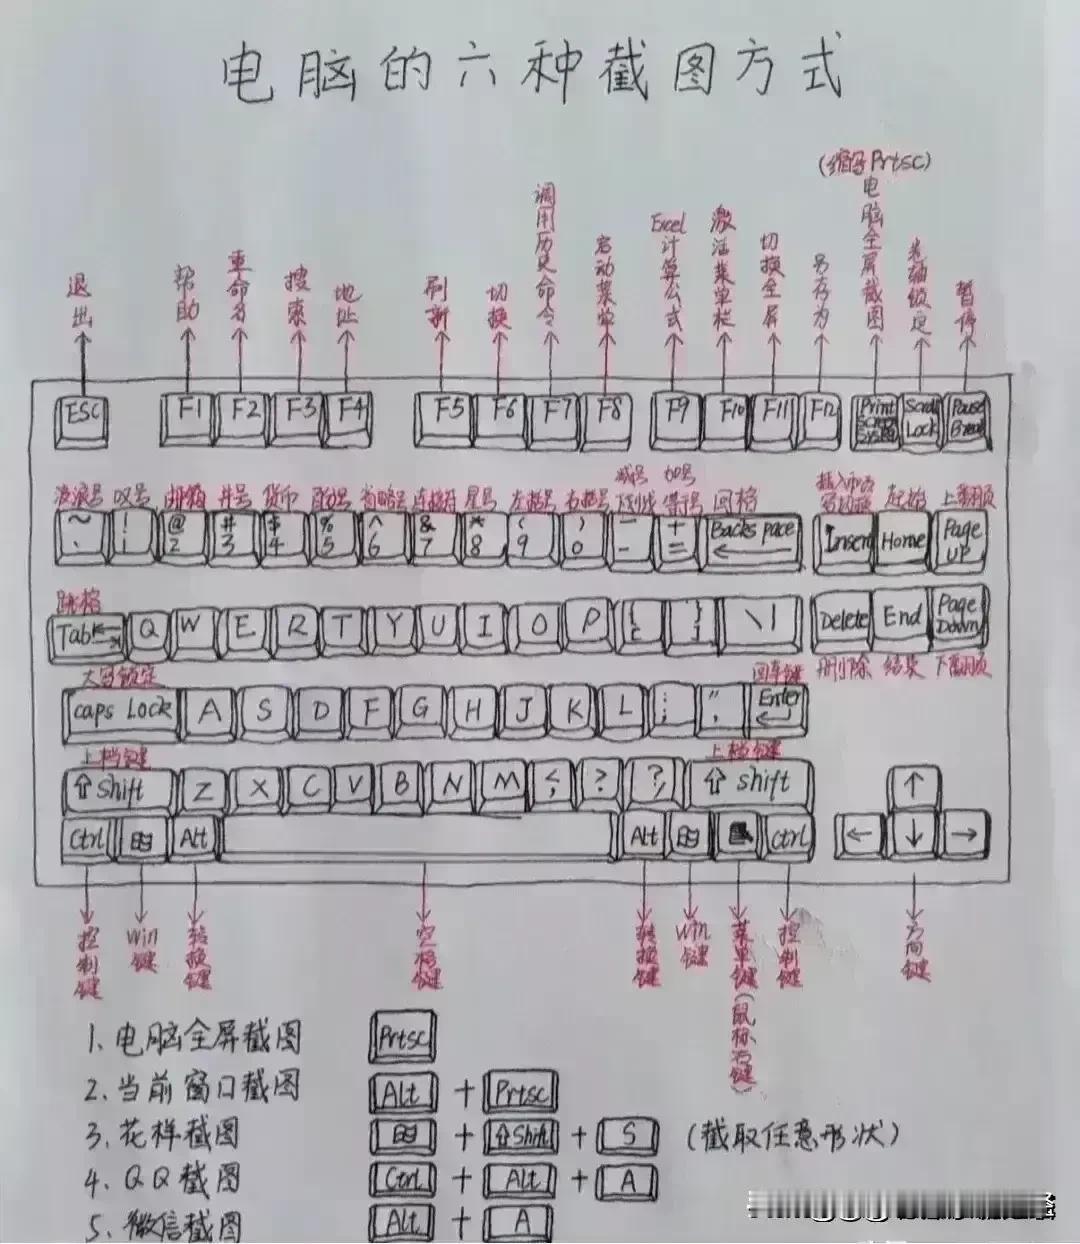 电脑的六种截图方式
(缩写Prtsc)
退出
帮助
重命名
搜索
地址
刷新
切换
调用历史命令
启动菜单
Excel计算公式
激活菜单栏
切换全屏
另存为
电脑全屏截图
卷轴锁定
暂停
ESC F1 F2 F3 F4 F5 F6 F7 F8 F9 F10 F11 F12 Print Screen SysRq Scroll Lock Pause Break
波浪号 叹号 邮箱 井号 货币 百分号 省略号 连接符 星号 左括号 右括号 减号 下划线 加号 等号 回格 起始 上翻页
~ ` ! 1 @ 2 # 3 $ 4 % 5 ^ 6 & 7 * 8 ( 9 ) 0 _ - + = Backspace Insert Home Page UP
跳格
Tab Q W E R T Y U I O P { [ } ] \ | Delete End Page Down
删除 结束 下翻页
大写锁定 回车键
caps Lock A S D F G H J K L : ; " ' Enter
上档键 上档键
shift Z X C V B N M < , > . ? / shift
Ctrl Alt Alt Ctrl
↑
← ↓ →
控制键
Win键
转换键
空格键
转换键
Win键
菜单键(鼠标右键)
控制键
方向键
1、电脑全屏截图 Prtsc
2、当前窗口截图 Alt + Prtsc
3、花样截图 + Shift + S (截取任意形状)
4、QQ截图 Ctrl + Alt + A
5、微信截图 Alt + A